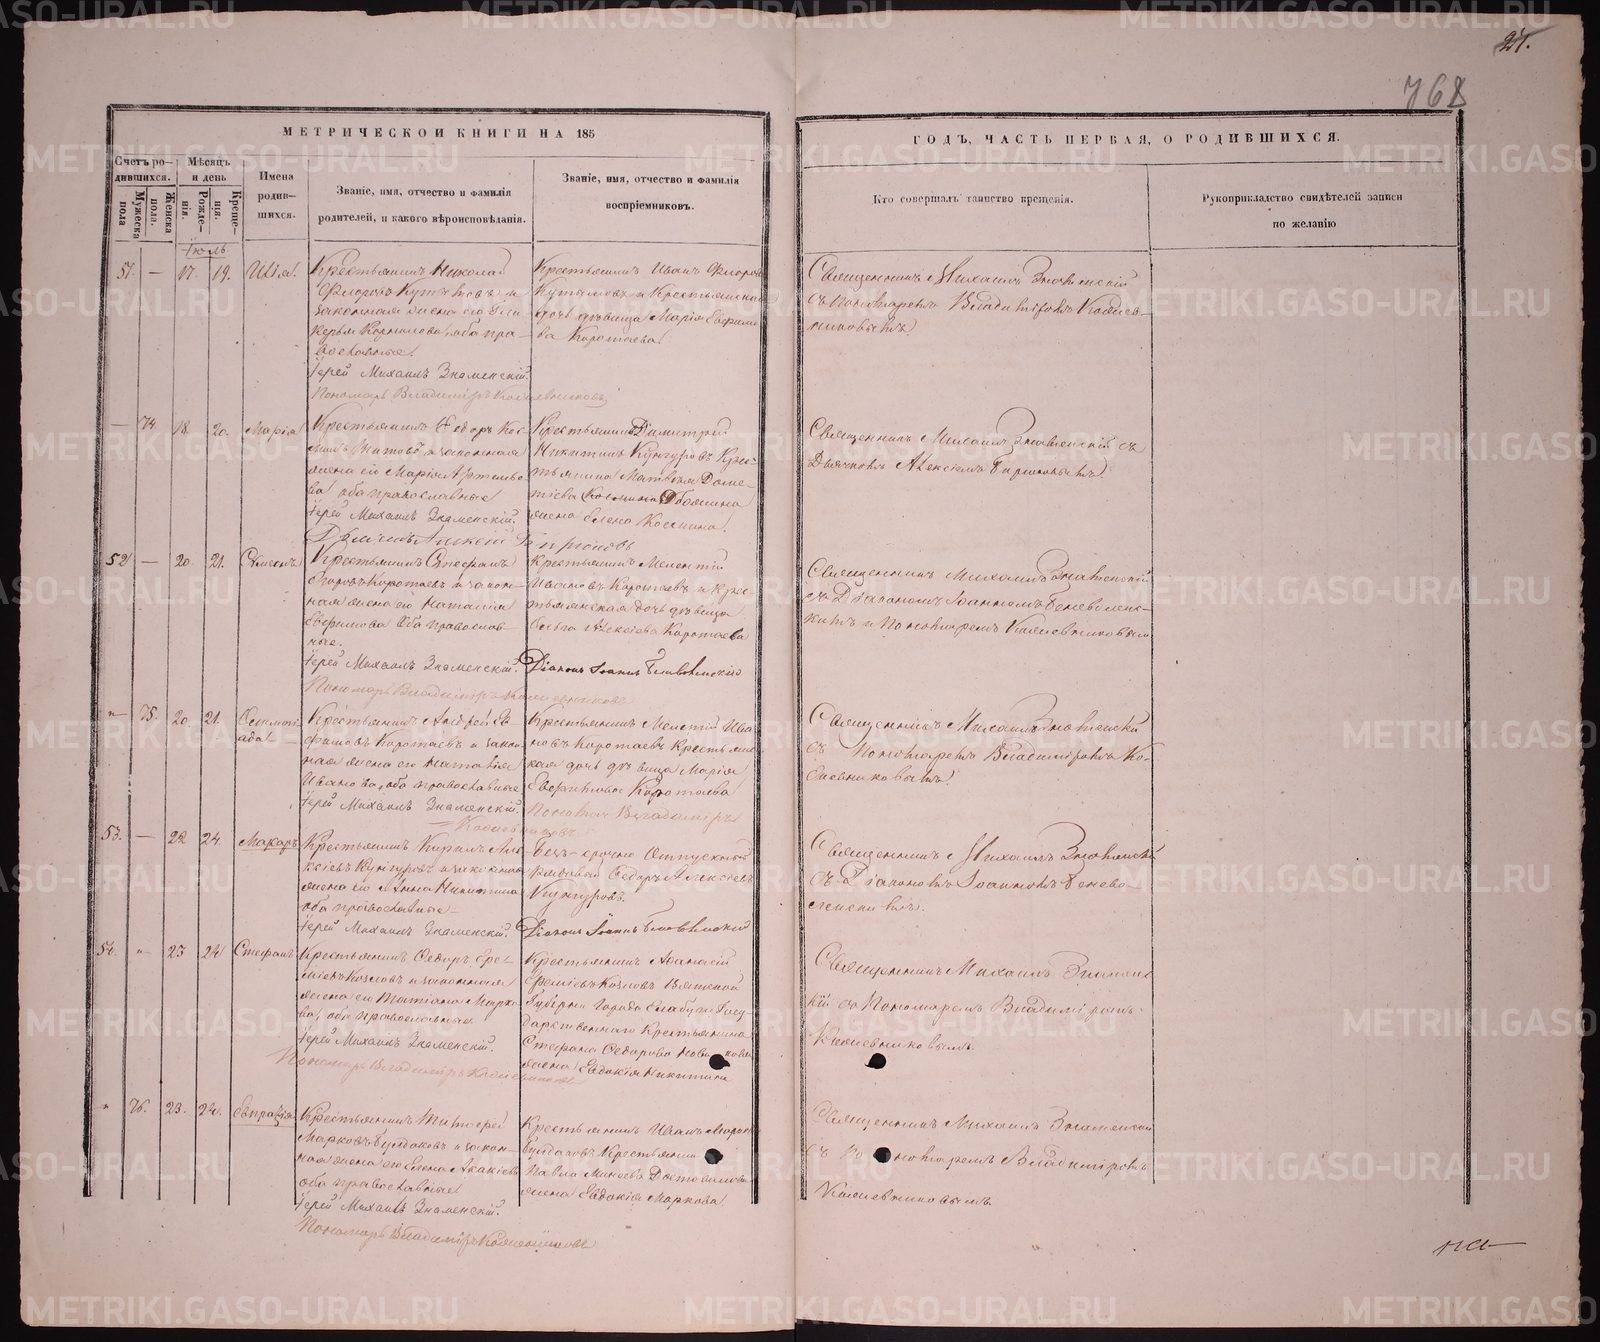 21.
768
МЕТРИЧЕСКОЙ КНИГИ НА 185
ГОДЪ, ЧАСТЬ ПЕРВАЯ, О РОДИВШИХСЯ.
Счетъ ро-
дившихся.
Мужеска пола
Женска пола.
Мѣсяцъ
и день
Рожде-
нія.
Креще-
нія.
Имена
родив-
шихся.
Званіе, имя, отчество и фамилія
родителей, и какого вѣроисповѣданія.
Званіе, имя, отчество и фамилія
воспріемниковъ.
Кто совершалъ таинство крещенія.
Рукоприкладство свидѣтелей записи
по желанію
Іюль
51. — 17. 19. Илія.
Крестьянинъ Николай
Флоровъ и
законная жена его Гли-
керья Корнилова, оба пра-
вославные.
Іерей Михаилъ Знаменскій.
Пономарь Владиміръ Кожевниковъ
Крестьянинъ Иванъ Флоровъ
и Крестьянская
дочь дѣвица Марія Ефимо-
ва Коротаева.
Священникъ Михаилъ Знаменскій
съ Пономаремъ Владиміромъ Кожев-
никовымъ
— 74 18. 20. Марія
Крестьянинъ Ѳедоръ Кос-
и законная
жена его Марія Артемье-
ва оба православные
Іерей Михаилъ Знаменскій.
Крестьянинъ Димитрій
Никитинъ Кунгуровъ Крес-
тьянина Матвѣя Доме-
тіева
жена Елена Космина.
Священникъ Михаилъ Знаменскій съ
Дьячкомъ Алексіемъ
52 — 20. 21. Сѵмеонъ
Крестьянинъ Стефанъ
Коротаевъ и закон-
ная жена его Наталія
Ефимова оба православ-
ные.
Іерей Михаилъ Знаменскій.
Пономарь Владиміръ Кожевниковъ
Крестьянинъ Мелентій
Ивановъ Коротаевъ и Крес-
тьянская дочь дѣвица
Ольга Алексіева Коротаева
Діаконъ Іоаннъ Беневоленскій
Священникъ Михаилъ Знаменскій
съ Діакономъ Іоанномъ Беневоленс-
кимъ и Пономаремъ Кожевниковымъ
" 75. 20. 21.
Крестьянинъ Андрей Е-
фимовъ Коротаевъ и закон-
ная жена его Наталія
Иванова, оба православные
Іерей Михаилъ Знаменскій.
Крестьянинъ Мелетій Ива-
новъ Коротаевъ Крестьянс-
кая дочь дѣвица Марія
Ефимова Коротаева
Пономарь Владиміръ
Кожевниковъ
Священникъ Михаилъ Знаменскій
съ Пономаремъ Владиміромъ Ко-
жевниковымъ.
53. — 22 24. Макаръ
Крестьянинъ Кирилъ Але-
ксіевъ Кунгуровъ и законная
жена его Анна Никитина
оба православные
Іерей Михаилъ Знаменскій.
Безъ-срочно Отпускной
рядовой Ѳедоръ Алексіевъ
Кунгуровъ.
Діаконъ Іоаннъ Беневоленскій
Священникъ Михаилъ Знаменскій
съ Діакономъ Іоанномъ Бенево-
ленскимъ.
54. " 23 24 Стефанъ
Крестьянинъ Ѳедоръ Ере-
міевъ Козловъ и законная
жена его Татіана Марко-
ва, оба православные
Іерей Михаилъ Знаменскій.
Пономарь Владиміръ Кожевниковъ
Крестьянинъ Аѳанасій
Ереміевъ Козловъ Вятской
Губерніи Города Елабуги Госу-
дарственнаго Крестьянина
Стефана Ѳедорова
жена Евдокія Никитина
Священникъ Михаилъ Знаменс-
кій съ Пономаремъ Владиміромъ
Кожевниковымъ.
" 76. 23. 24. Евпраксія
Крестьянинъ Тимоѳей
Марковъ Булдаковъ и закон-
ная жена его Елена Акакіева
оба православные
Іерей Михаилъ Знаменскій.
Пономарь Владиміръ Кожевниковъ
Крестьянинъ Иванъ Марковъ
Булдаковъ Крестьянина
Павла Минеева
жена Евдокія Маркова
Священникъ Михаилъ Знаменскій
съ Пономаремъ Владиміромъ
Кожевниковымъ.
METRIKI.GASO-URAL.RU